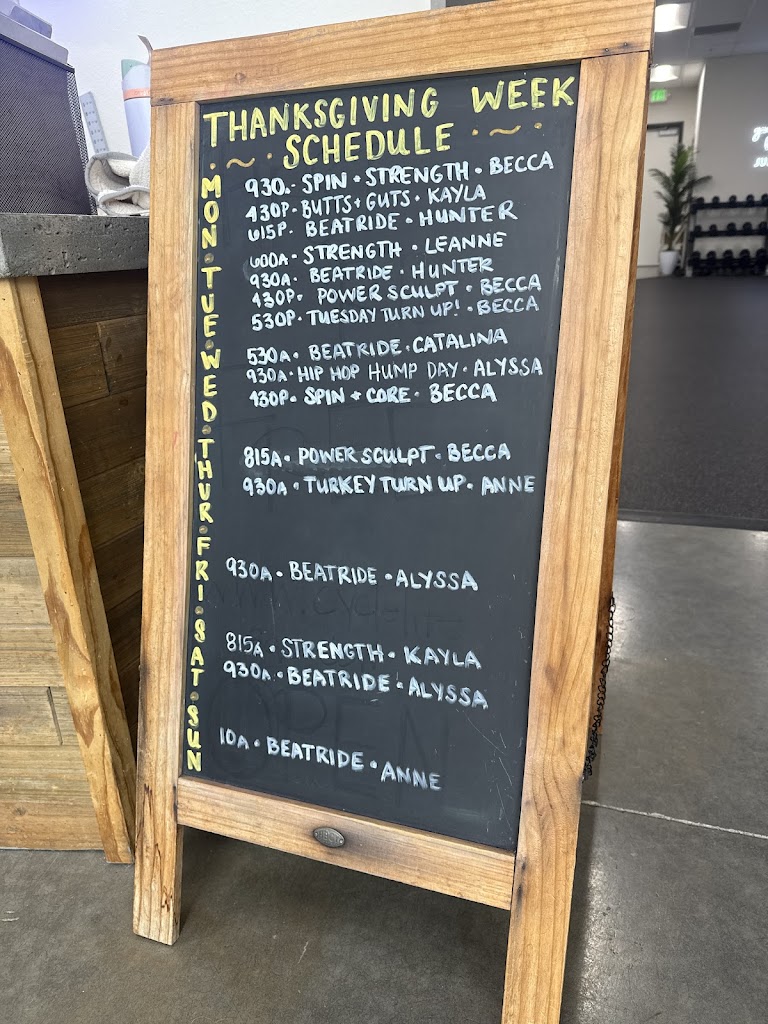 THANKSGIVING WEEK
· ~ · SCHEDULE · ~ ·
MON · TUE · WED · THUR · FRI · SAT · SUN
930 · SPIN + STRENGTH · BECCA
430P · BUTTS + GUTS · KAYLA
615P · BEATRIDE · HUNTER
600A · STRENGTH · LEANNE
930A · BEATRIDE · HUNTER
430P · POWER SCULPT · BECCA
530P · TUESDAY TURN UP! · BECCA
530A · BEATRIDE · CATALINA
930A · HIP HOP HUMP DAY · ALYSSA
430P · SPIN + CORE · BECCA
815A · POWER SCULPT · BECCA
930A · TURKEY TURN UP · ANNE
930A · BEATRIDE · ALYSSA
815A · STRENGTH · KAYLA
930A · BEATRIDE · ALYSSA
10A · BEATRIDE · ANNE
OPEN